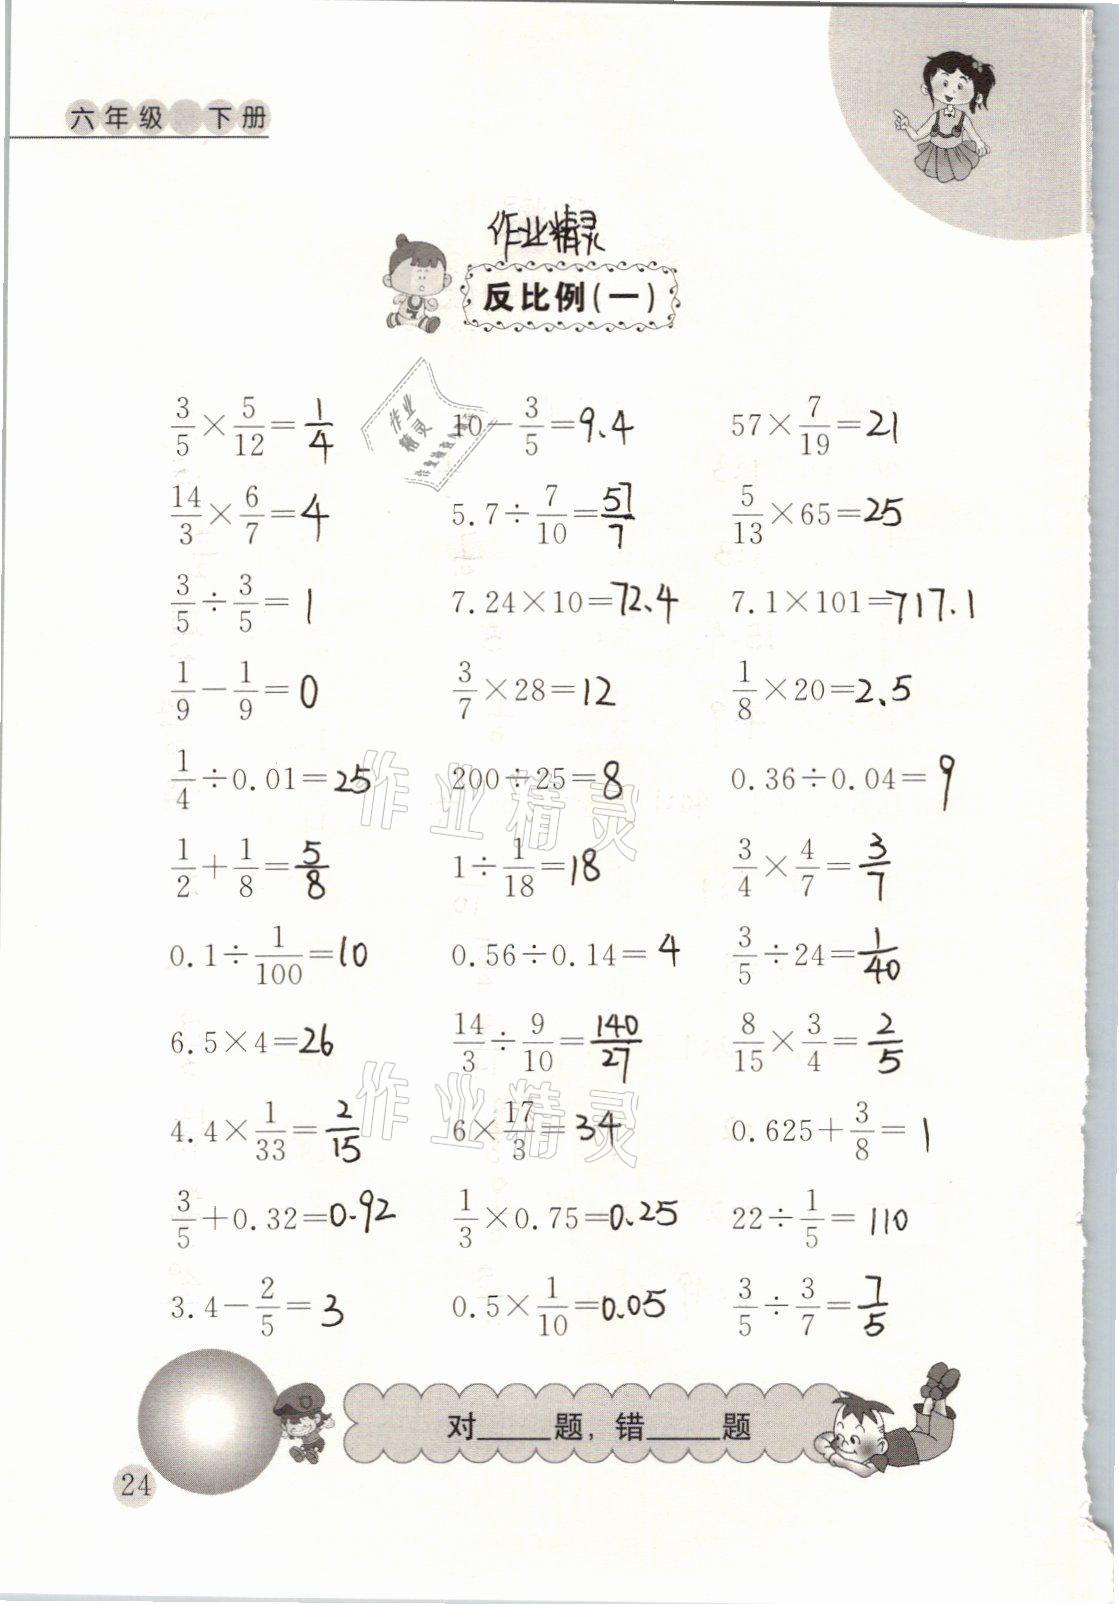 六年级 下册
作业精灵
反比例(一)
作业
精灵
3/5×5/12=1/4 10-3/5=9.4 57×7/19=21
14/3×6/7=4 5.7÷7/10=57/7 5/13×65=25
3/5÷3/5=1 7.24×10=72.4 7.1×101=717.1
1/9-1/9=0 3/7×28=12 1/8×20=2.5
1/4÷0.01=25 200÷25=8 0.36÷0.04=9
作业精灵
1/2+1/8=5/8 1÷1/18=18 3/4×4/7=3/7
0.1÷1/100=10 0.56÷0.14=4 3/5÷24=1/40
6.5×4=26 14/3÷9/10=140/27 8/15×3/4=2/5
作业精灵
4.4×1/33=2/15 6×17/3=34 0.625+3/8=1
3/5+0.32=0.92 1/3×0.75=0.25 22÷1/5=110
3.4-2/5=3 0.5×1/10=0.05 3/5÷3/7=7/5
对____题，错____题
24